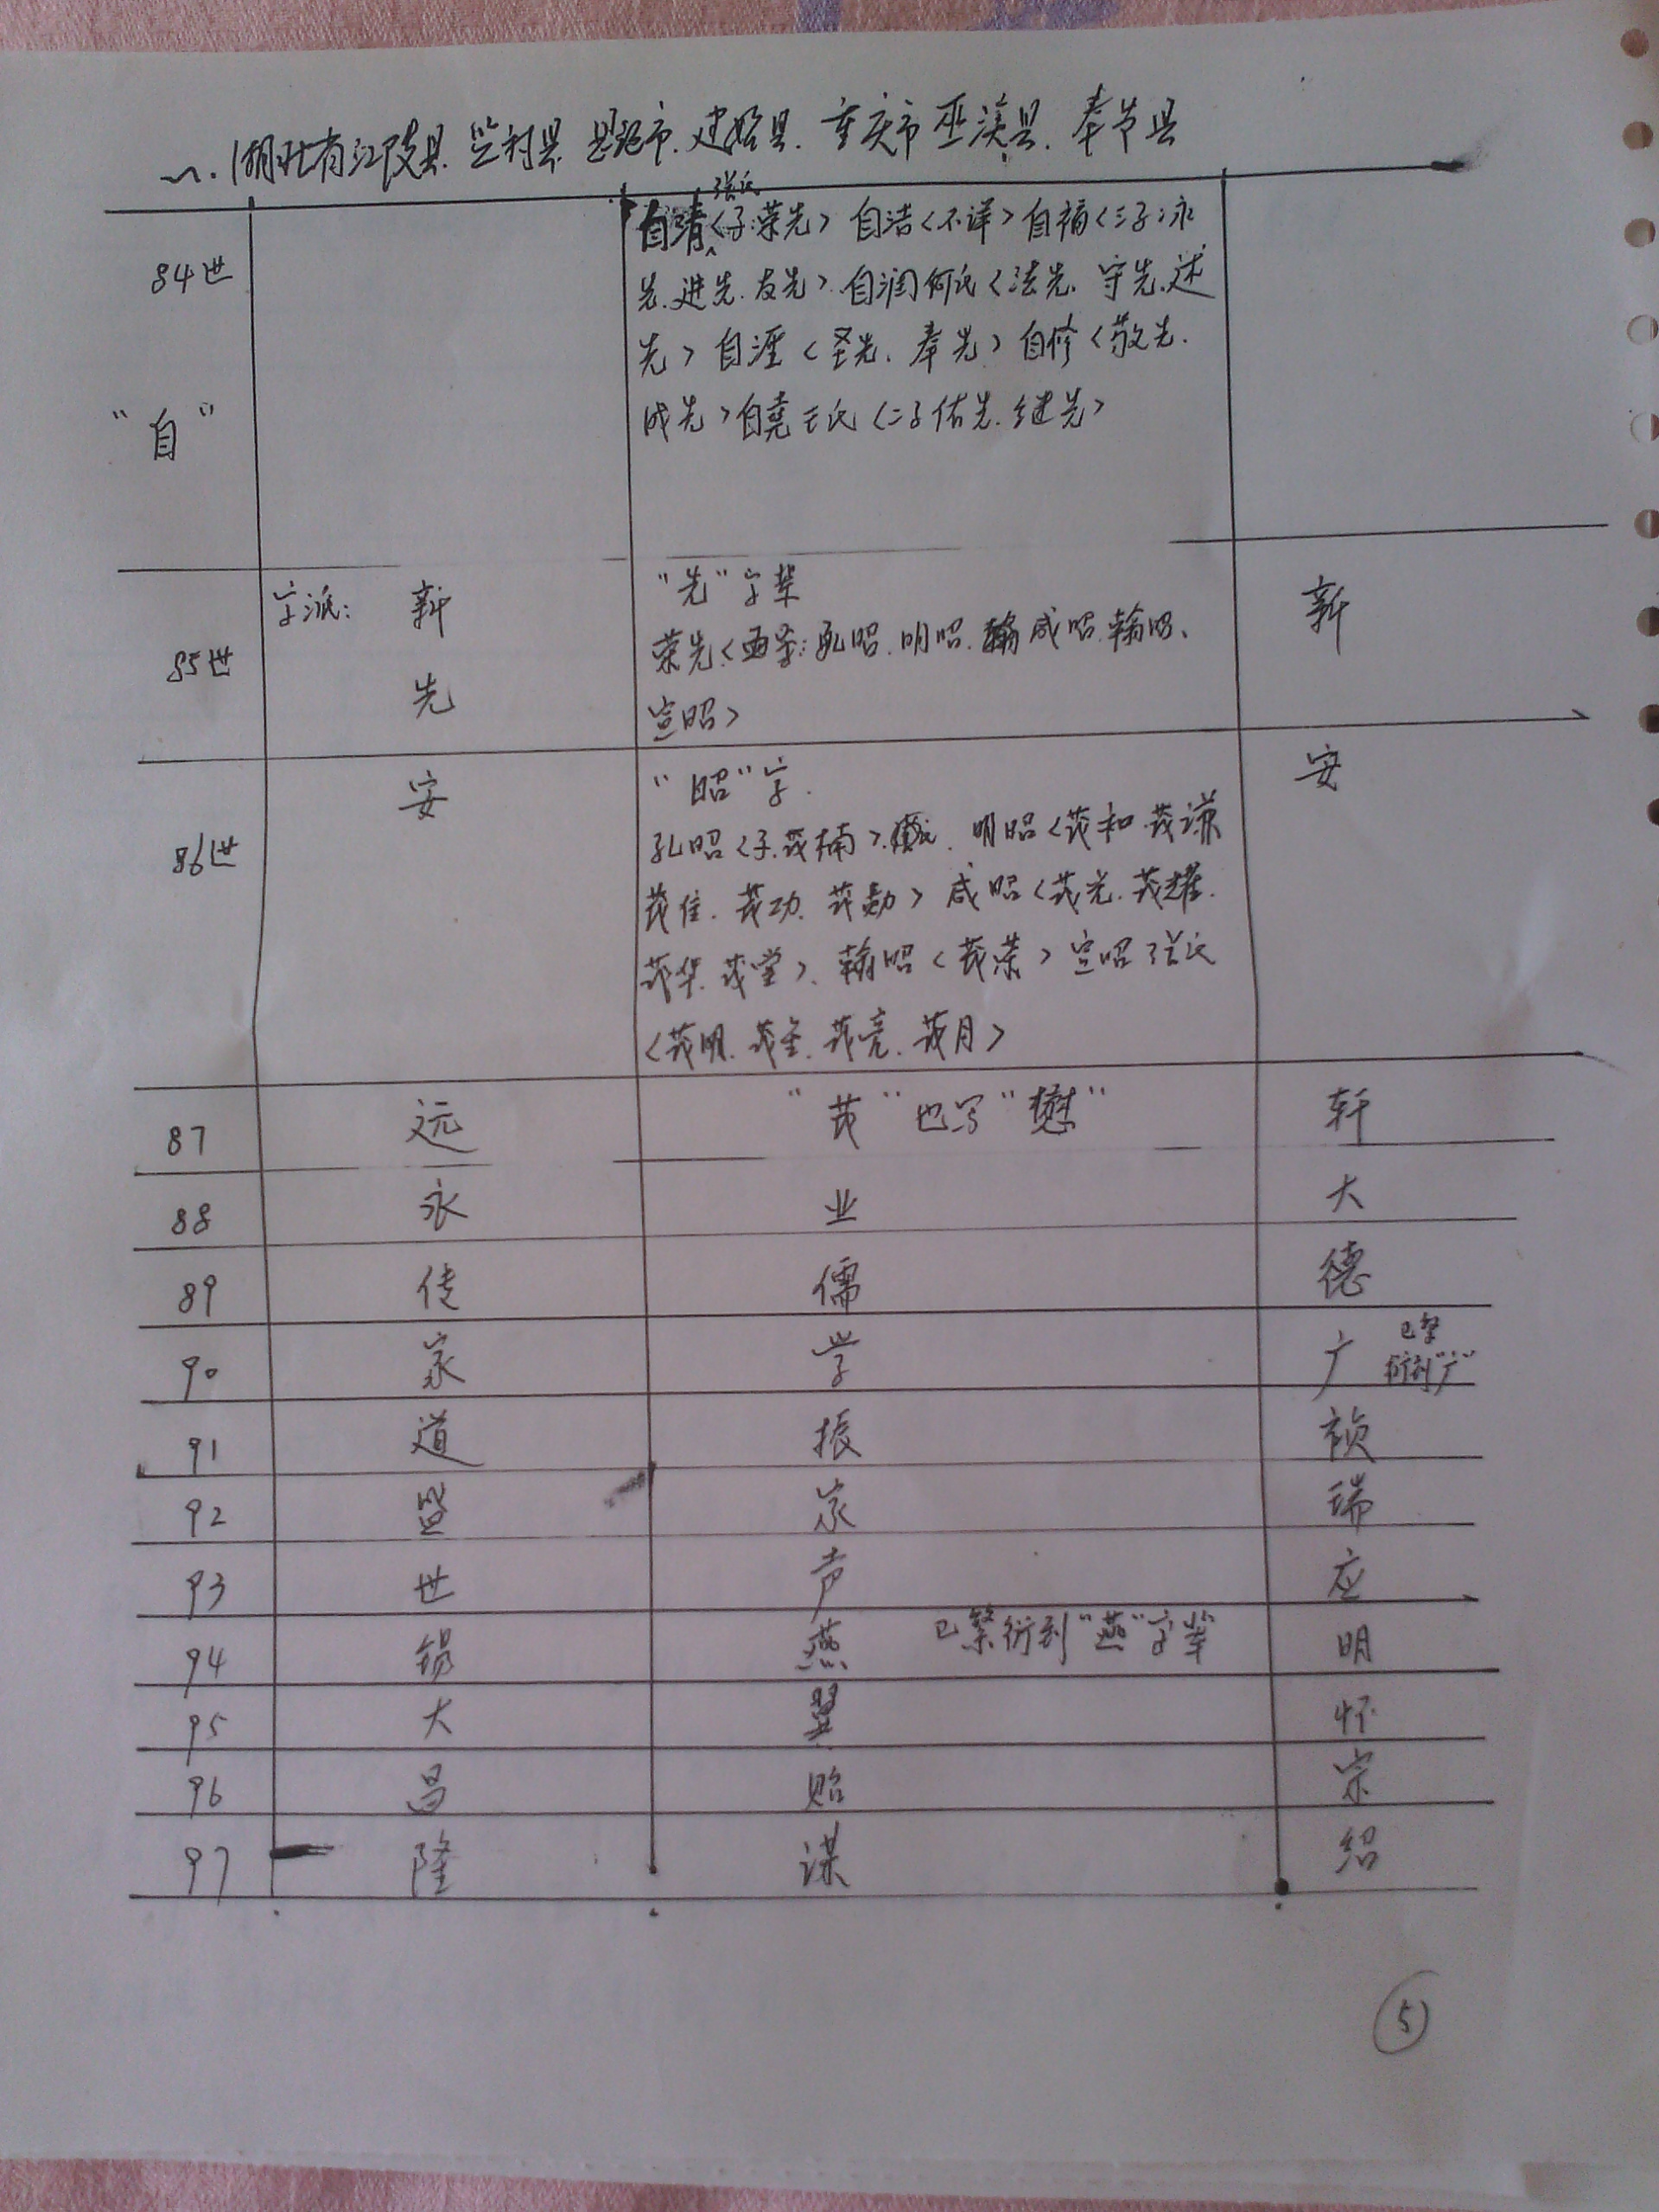 一.湖北省江陵县.监利县.恩施市.建始县.重庆市巫溪县.奉节县
84世
"自"
张氏
自清〈子:荣先〉自洁〈不详〉自福〈三子:永
先.进先.友先〉.自润何氏〈法先.守先.述
先〉自涯〈圣先.奉先〉自修〈敬先.
成先〉自尧王氏〈二子佑先.继先〉
85世
字派: 新
先
"先"字辈
荣先〈孔昭.明昭.咸昭.翰昭、
宣昭〉
新
86世
安
"昭"字.
孔昭〈子.茂楠〉.明昭〈茂和.茂谦
茂佳.茂功.茂勋〉咸昭〈茂光.茂耀.
茂华.茂堂〉.翰昭〈茂荣〉宣昭张氏
〈茂明.茂全.茂亮.茂月〉
安
87 远 "茂"也写"懋" 轩
88 永 业 大
89 传 儒 德
90 家 学 广 已繁
衍到"广"
91 道 振 祯
92 盛 家 瑞
93 世 声 应
94 锡 燕 已繁衍到"燕"字辈 明
95 大 翼 怀
96 昌 贻 宗
97 隆 谋 绍
5